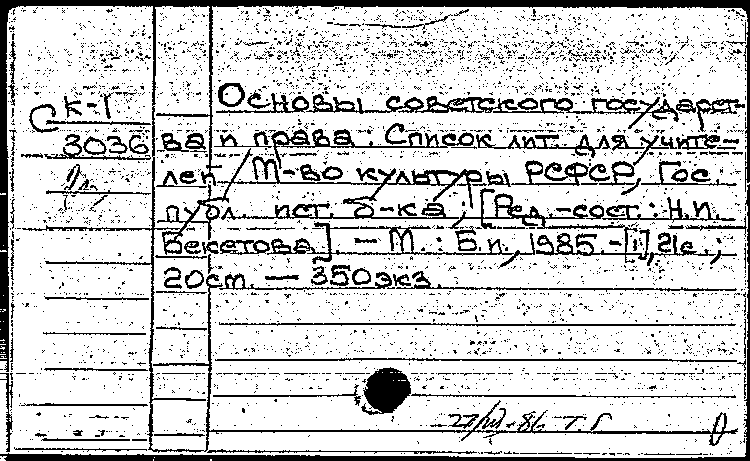 С К-1
3036
Основы советского государст-
ва и права : Список лит. для учите-
лей / М-во культуры РСФСР, Гос.
публ. ист. б-ка ; [Ред.-сост. : Н.И.
Бекетова] — М. : Б.и., 1985. -[1], 21с. ;
20см. — 350экз.
27/VIII-86 Т. Г